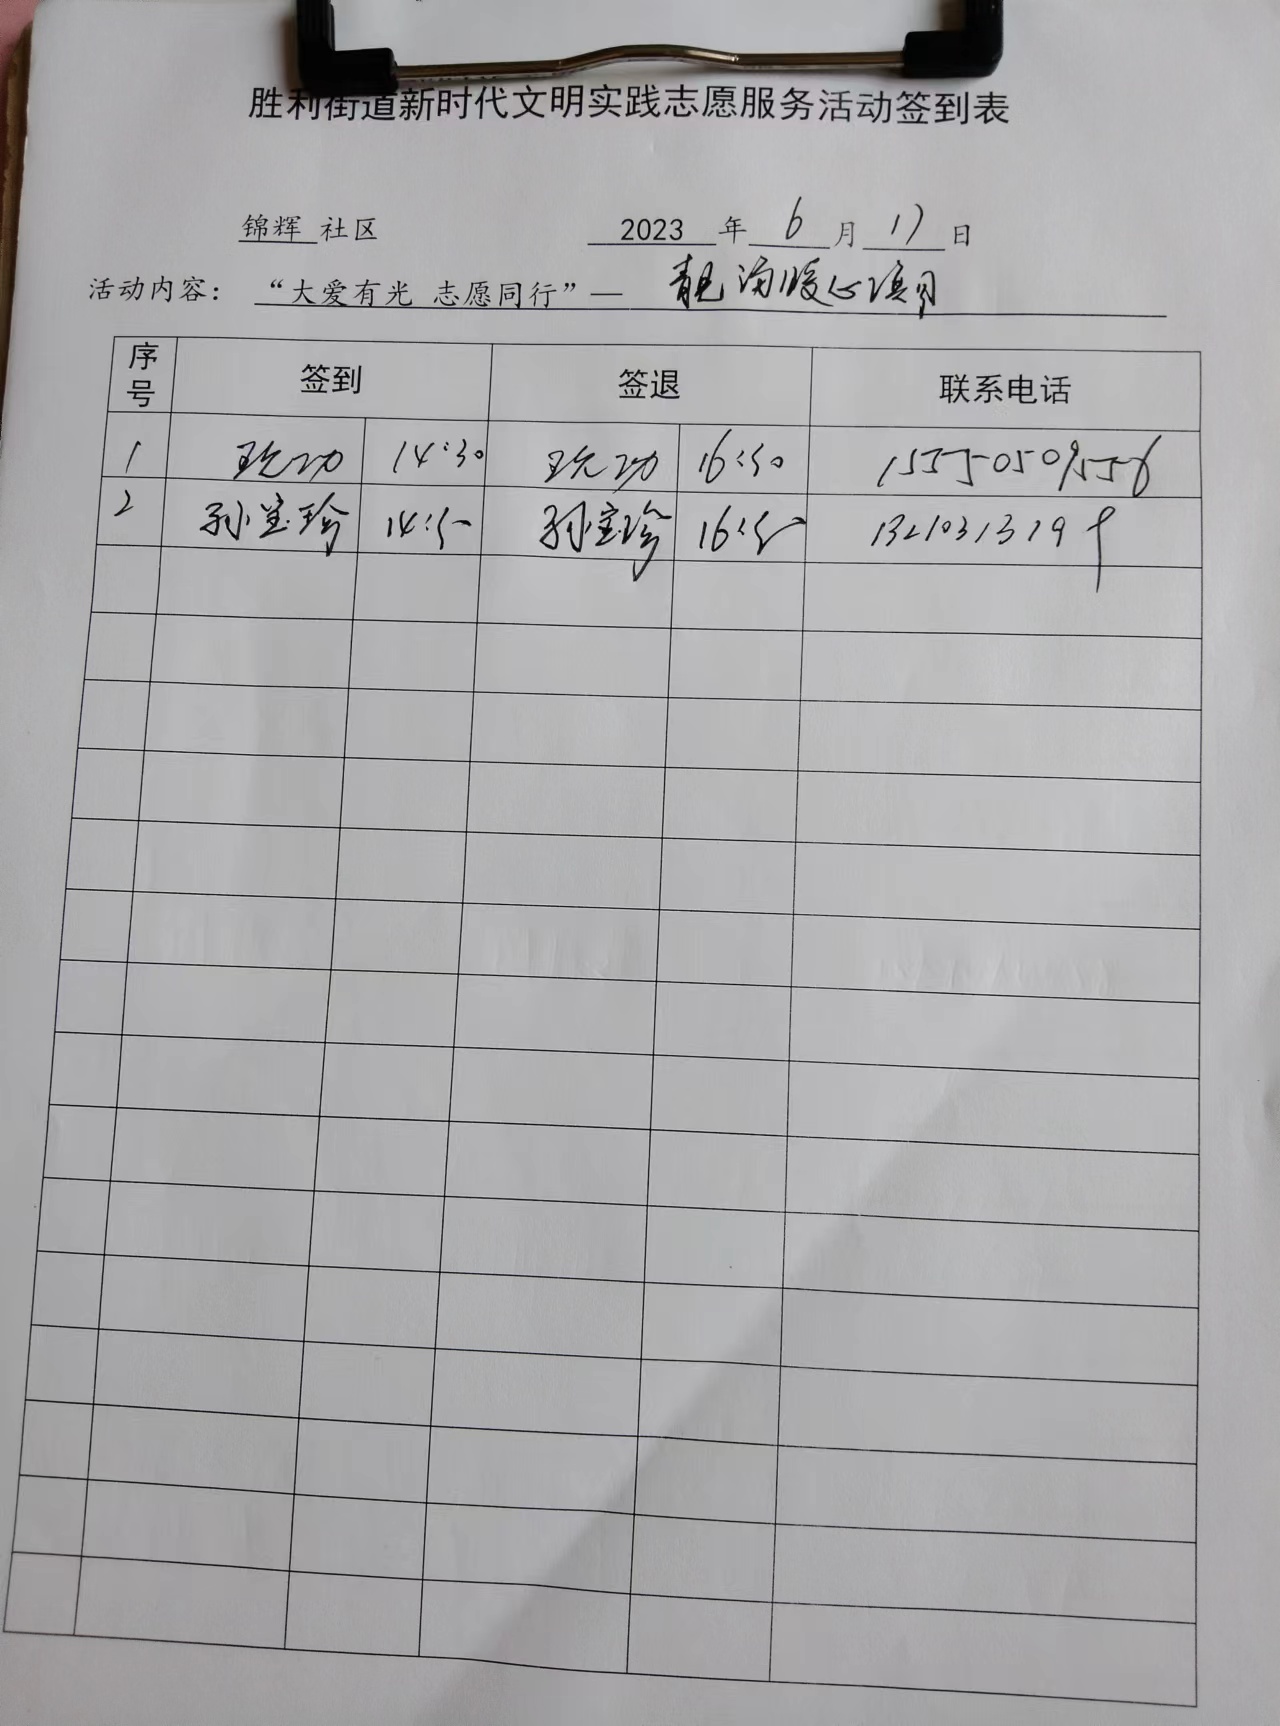 胜利街道新时代文明实践志愿服务活动签到表
锦辉 社区 2023 年 6 月 17 日
活动内容：“大爱有光 志愿同行”— 暖心
序号 签到 签退 联系电话
1 14:30 16:50 15550509556
2 孙宝珍 14:50 孙宝珍 16:50 1321031319